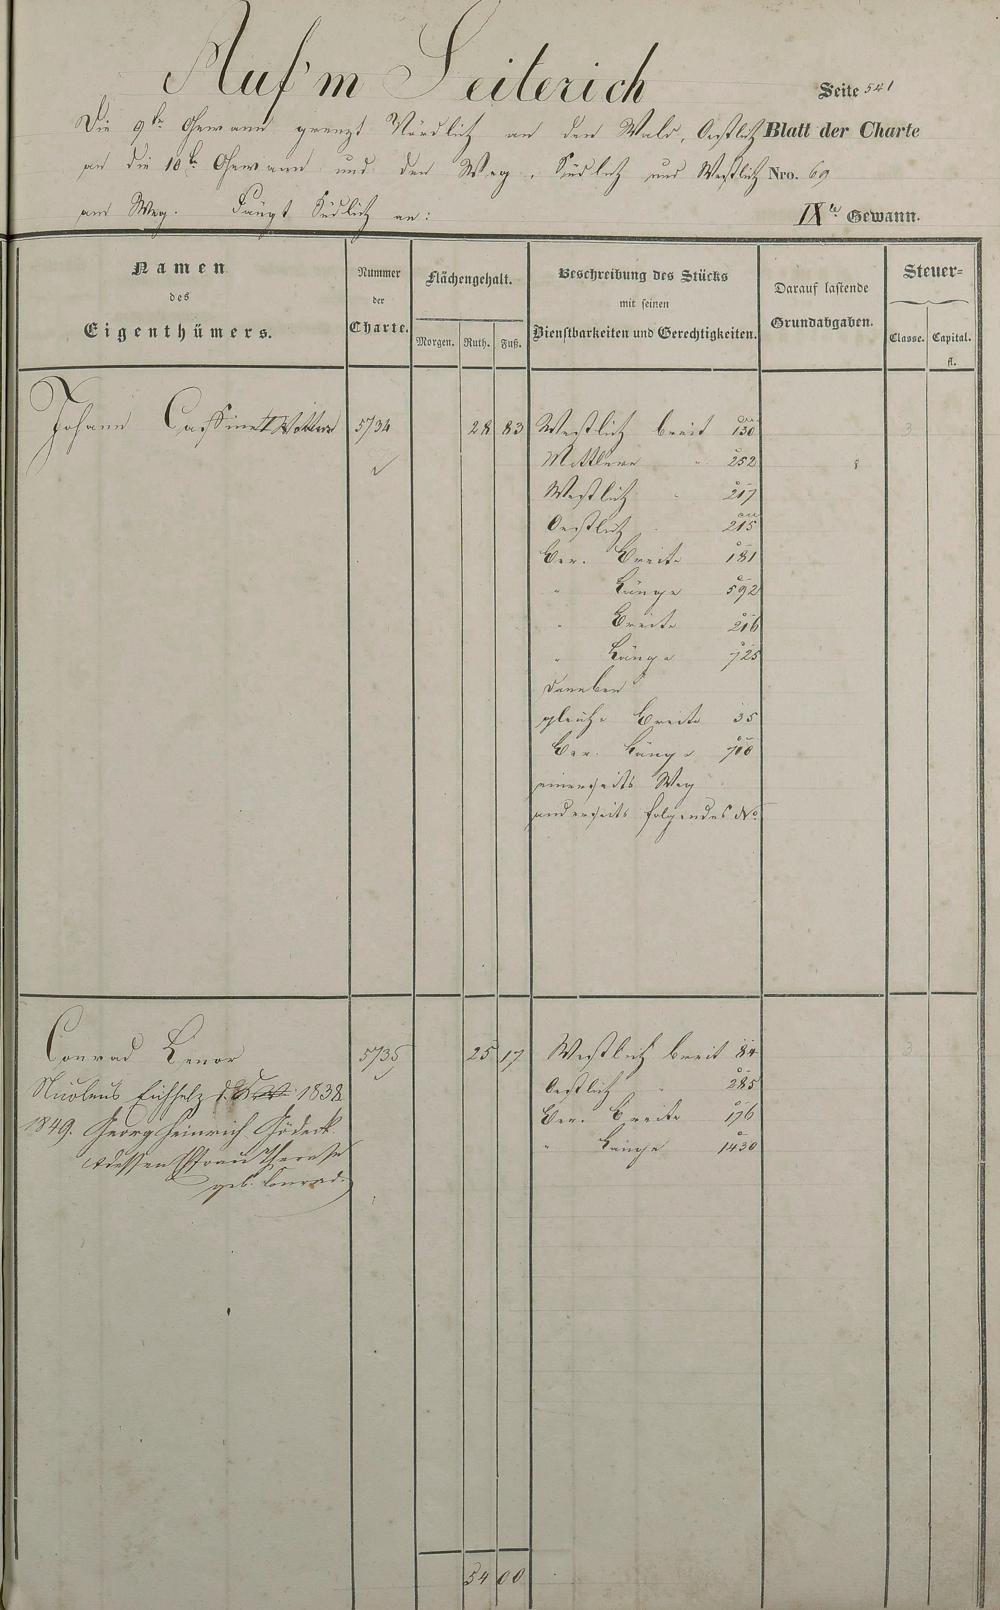 Auf'm Leiterich
Seite 541
Die 9te Gewann grenzt Nördlich an den Wald, Oestlich
Blatt der Charte
an die 10te Gewann und den Weg, Südlich und Westlich
Nro. 69
am Weg. Fängt Südlich an:
IXte Gewann.
Namen
des
Eigenthümers.
Nummer
der
Charte.
Flächengehalt.
Morgen. Ruth. Fuß.
Beschreibung des Stücks
mit seinen
Dienstbarkeiten und Gerechtigkeiten.
Darauf lastende
Grundabgaben.
Steuer=
Classe. Capital.
fl.
Johann 5734 28 83 Westlich breit 130 3
Mittlere " 252
Westlich " 217
Oestlich " 215
Ber. Breite 181
" Länge 592
" Breite 216
" Länge 725
daneben
gleiche Breite 35
Ber. Länge 700
einerseits Weg
anderseits folgendes No.
Conrad Lenor 5735 25 17 Westlich breit 84 3
1838 Oestlich " 285
1849. Georg Heinrich Gödeck Ber. Breite 176
dessen Frau Therese " Länge 1430
geb. Conrad.
54 00